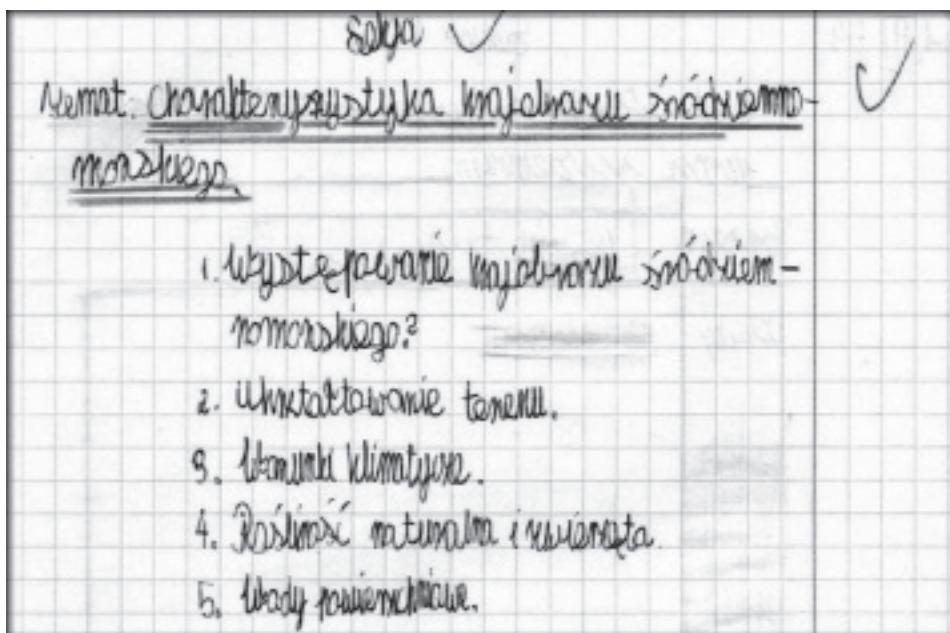 Lekcja
Temat: Charakterysystyka krajobrazu śródziemno-
morskiego.
1. Występowanie krajobrazu śródziem-
nomorskiego?
2. Ukształtowanie terenu.
3. Warunki klimatyczne.
4. Roślinność naturalna i zwierzęta.
5. Wody powierzchniowe.